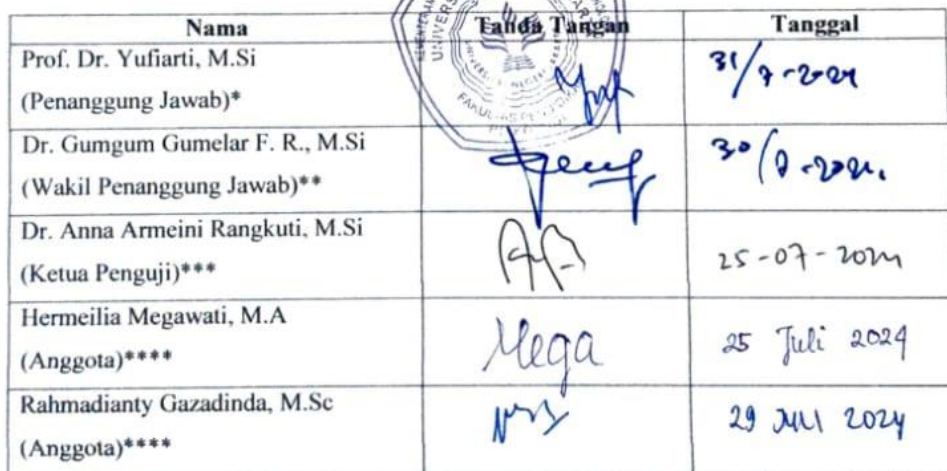 Nama Tanda Tangan Tanggal
Prof. Dr. Yufiarti, M.Si
(Penanggung Jawab)*
31/7-2024
Dr. Gumgum Gumelar F. R., M.Si
(Wakil Penanggung Jawab)**
30/7-2024.
Dr. Anna Armeini Rangkuti, M.Si
(Ketua Penguji)***
25-07-2024
Hermeilia Megawati, M.A
(Anggota)****
Mega
25 Juli 2024
Rahmadianty Gazadinda, M.Sc
(Anggota)****
29 JULI 2024